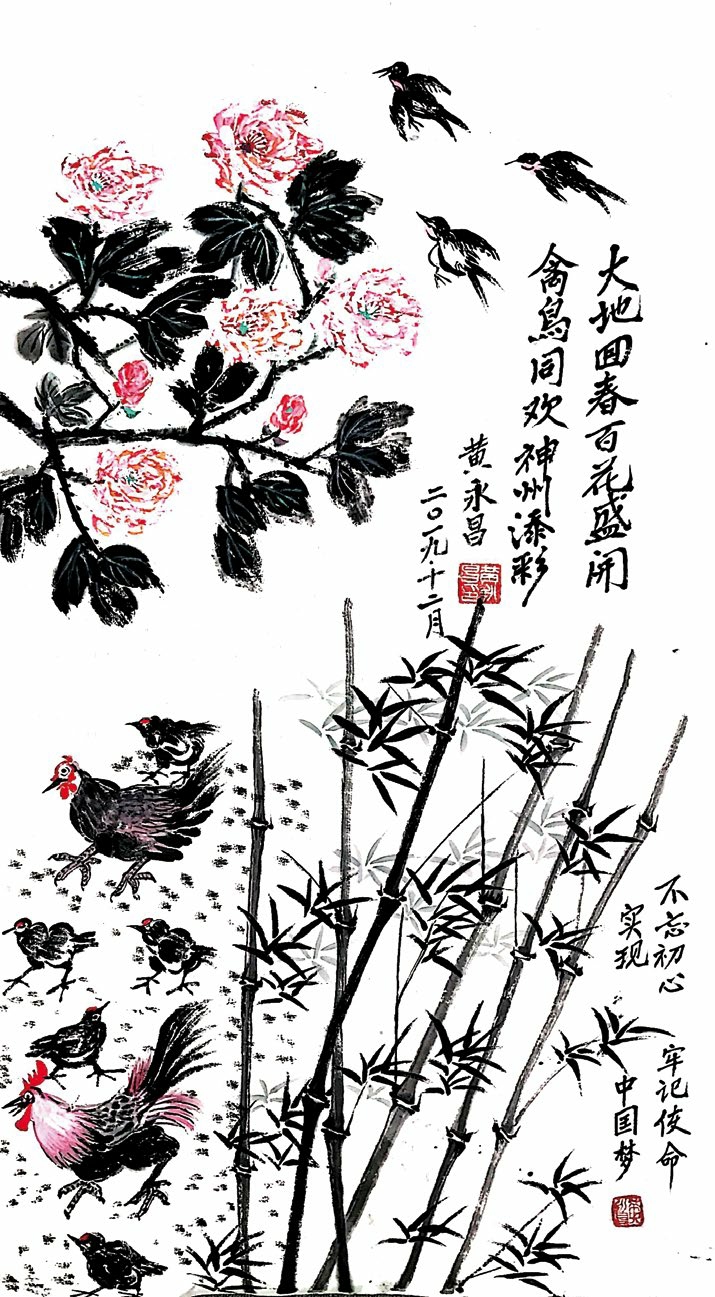 大地回春百花盛开
禽鸟同欢神州添彩
黄永昌
二〇一九·十二月
不忘初心 牢记使命
实现 中国梦